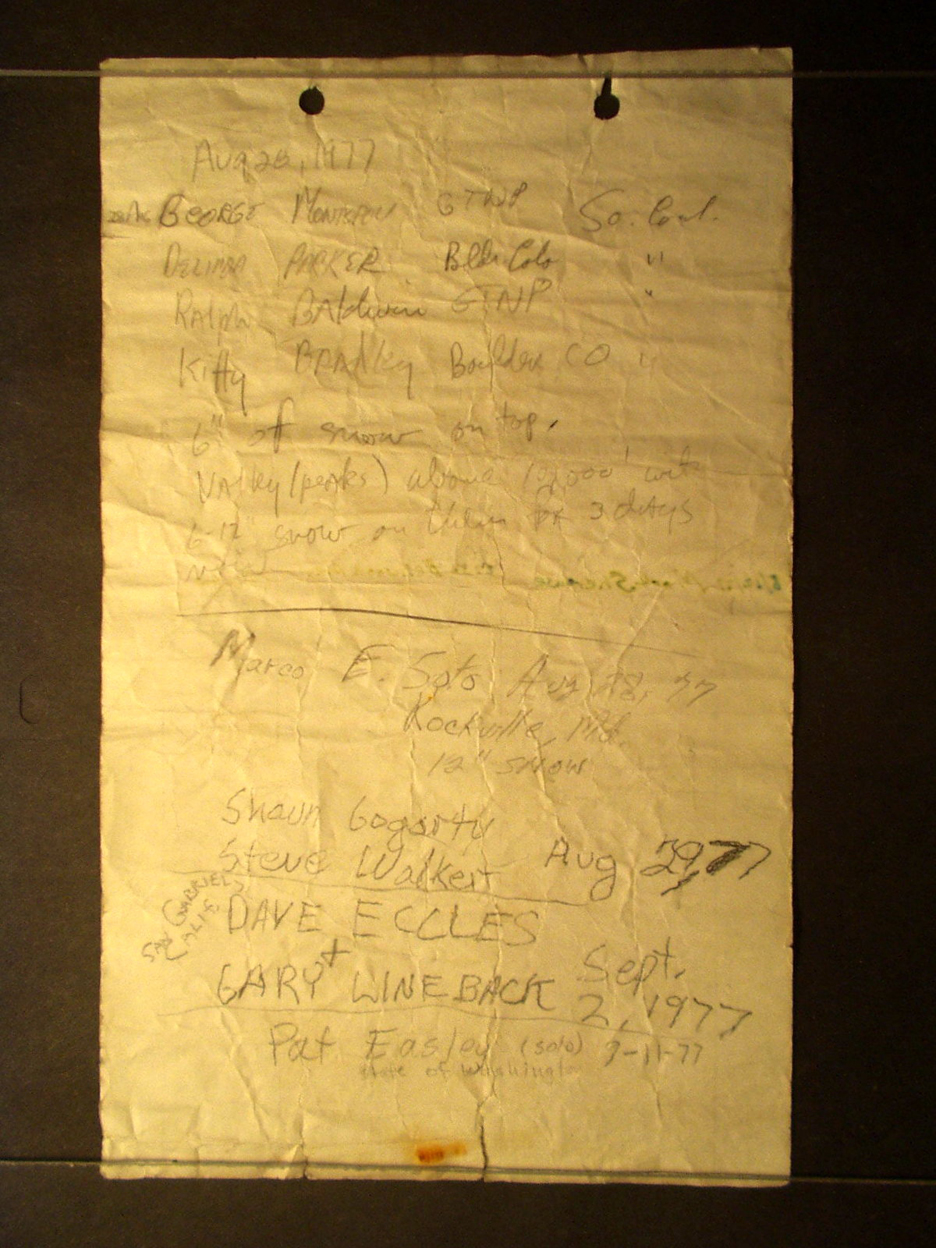 Aug 28, 1977
GEORGE GTNP So. Coul.
PARKER Bldr. Colo "
RAlph BAldwin GTNP "
Kitty BRAdley Boulder CO "
6" of snow on top.
VAlley (peaks) above 10,000' with
6-12" snow on them for 3 days
now
Marco E. Soto Aug 28, 77
Rockville, Md.
12" snow
Shaun Gogarty
Steve Walker Aug 29, 77
SAN GABRIEL CALIF.
DAVE ECCLES
+
GARY WINEBACK Sept. 2, 1977
Pat Easley (solo) 9-11-77
state of Washington